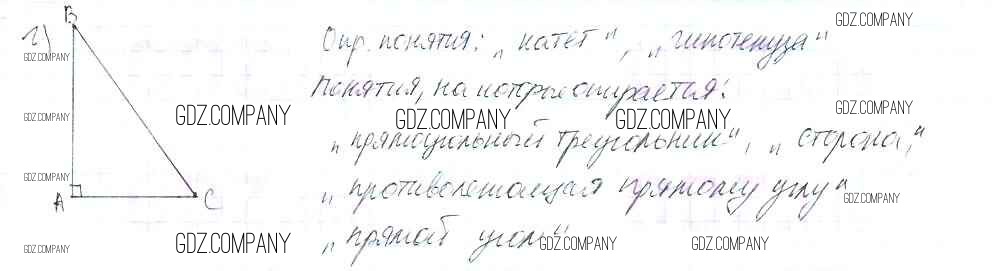 г) B
Опр. понятия: „катет“, „гипотенуза“
Понятия, на которые опирается:
„прямоугольный треугольник“, „сторона“,
„противолежащая прямому углу“
A C
„прямой угол“
GDZ.COMPANY
GDZ.COMPANY
GDZ.COMPANY
GDZ.COMPANY
GDZ.COMPANY
GDZ.COMPANY
GDZ.COMPANY
GDZ.COMPANY
GDZ.COMPANY
GDZ.COMPANY
GDZ.COMPANY
GDZ.COMPANY
GDZ.COMPANY
GDZ.COMPANY